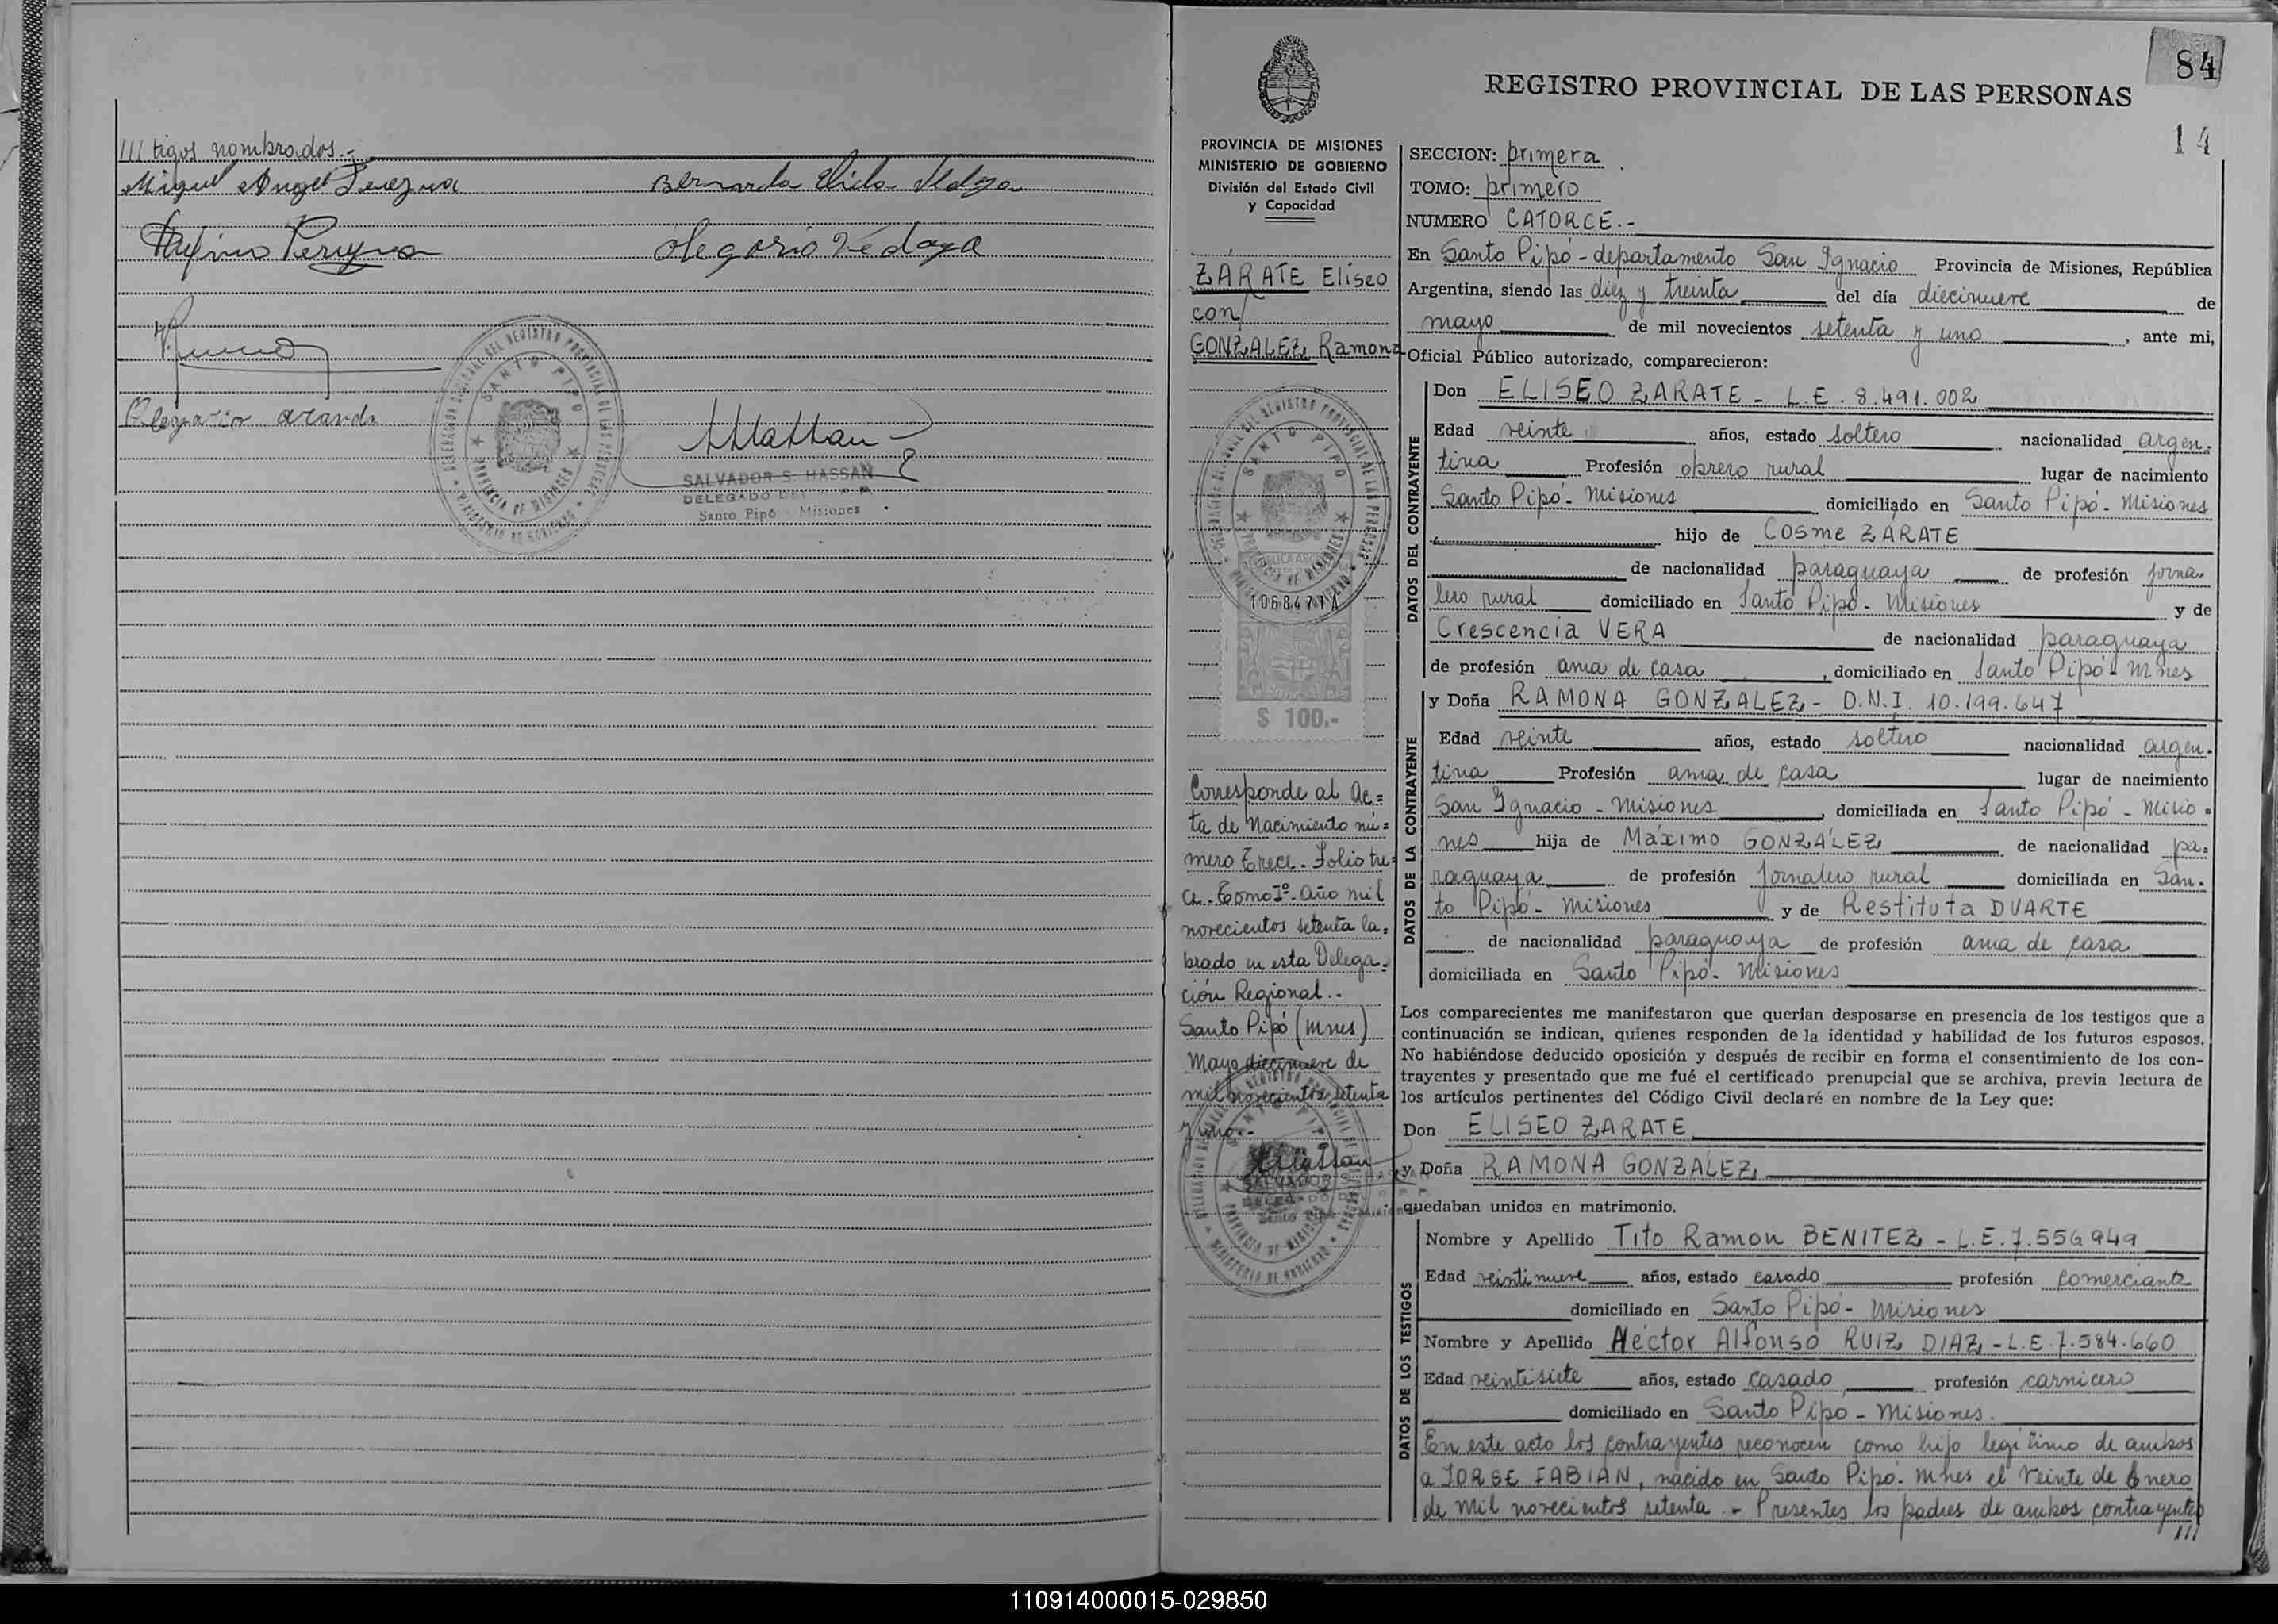 /// tigos nombrados.-
Miguel Angel
Bernarda
Olegario
SANTO PIPO
PROVINCIA DE MISIONES
SALVADOR S. HASSAN
DELEGADO DEL
Santo Pipó Misiones
84
REGISTRO PROVINCIAL DE LAS PERSONAS
14
PROVINCIA DE MISIONES
MINISTERIO DE GOBIERNO
División del Estado Civil
y Capacidad
ZARATE Eliseo
con/
GONZALEZ Ramona
SANTO PIPO
1068477A
$ 100.-
Corresponde al Ac=
ta de Nacimiento nú=
mero Trece. Folio tre=
ce. Tomo Iº. Año mil
novecientos setenta la=
brado en esta Delega=
ción Regional.-
Santo Pipó (Mnes)
Mayo diecinueve de
mil novecientos setenta
y uno.-
SECCION: primera
TOMO: primero
NUMERO CATORCE.-
En Santo Pipó - departamento San Ignacio Provincia de Misiones, República
Argentina, siendo las diez y treinta del día diecinueve de
mayo de mil novecientos setenta y uno, ante mi,
Oficial Público autorizado, comparecieron:
DATOS DEL CONTRAYENTE
Don ELISEO ZARATE - L.E. 8.491.002
Edad veinte años, estado soltero nacionalidad argen-
tina Profesión obrero rural lugar de nacimiento
Santo Pipó - Misiones domiciliado en Santo Pipó - Misiones
hijo de Cosme ZARATE
de nacionalidad paraguaya de profesión jorna-
lero rural domiciliado en Santo Pipó - Misiones y de
Crescencia VERA de nacionalidad paraguaya
de profesión ama de casa, domiciliado en Santo Pipó - Mnes
DATOS DE LA CONTRAYENTE
y Doña RAMONA GONZALEZ - D.N.I. 10.199.647
Edad veinte años, estado soltero nacionalidad argen-
tina Profesión ama de casa lugar de nacimiento
San Ignacio - Misiones, domiciliada en Santo Pipó - Misio-
nes hija de Máximo GONZÁLEZ de nacionalidad pa-
raguaya de profesión jornalero rural domiciliada en San-
to Pipó - Misiones y de Restituta DUARTE
de nacionalidad paraguaya de profesión ama de casa
domiciliada en Santo Pipó - Misiones
Los comparecientes me manifestaron que querían desposarse en presencia de los testigos que a
continuación se indican, quienes responden de la identidad y habilidad de los futuros esposos.
No habiéndose deducido oposición y después de recibir en forma el consentimiento de los con-
trayentes y presentado que me fué el certificado prenupcial que se archiva, previa lectura de
los artículos pertinentes del Código Civil declaré en nombre de la Ley que:
Don ELISEO ZARATE
y Doña RAMONA GONZALEZ
quedaban unidos en matrimonio.
DATOS DE LOS TESTIGOS
Nombre y Apellido Tito Ramon BENITEZ - L.E. 7.556 949
Edad veintinueve años, estado casado profesión comerciante
domiciliado en Santo Pipó - Misiones
Nombre y Apellido Héctor Alfonso RUIZ DIAZ - L.E. 7.584.660
Edad veintisiete años, estado casado profesión carnicero
domiciliado en Santo Pipó - Misiones.
En este acto los contrayentes reconocen como hijo legítimo de ambos
a JORGE FABIAN, nacido en Santo Pipó. Mnes el veinte de Enero
de mil novecientos setenta.- Presentes los padres de ambos contrayentes
///
110914000015-029850